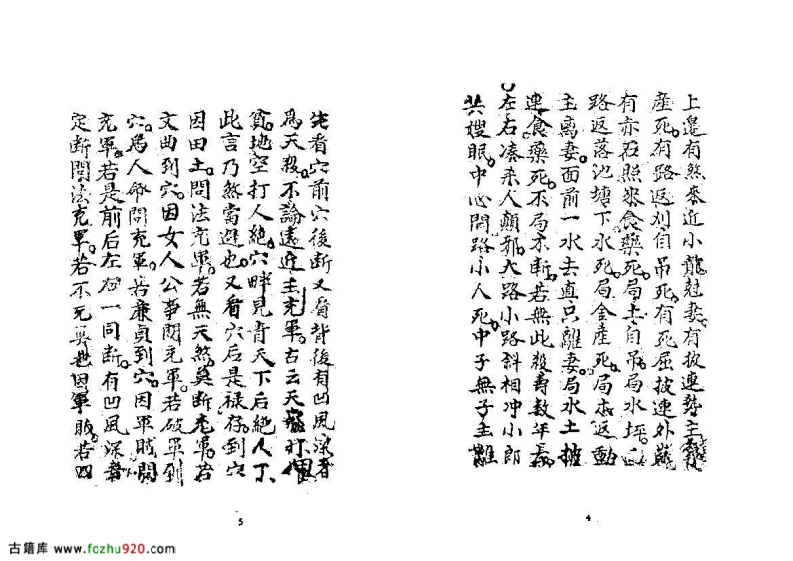 上邉有煞來近小龍尅妻有披連剪主
產死有路返列自吊死有死屈披連外
有亦石照來食藥死局土自吊局水坪
路返落池塘下水死局金產死局木返動
主离妻面前一水去直只離妻局水土披
連食藥死不局木断若無此殺壽数年長
左右湊來人顛邪大路小路斜相冲小郎
共嫂眠中心開路小人死中子無子主離
4
先看穴前穴後断又看背後有凹風深者
爲天殺不論遠近主充軍古云天打
貧地空打人絶穴畔見青天下后絶人丁
此言乃煞當避也又看穴后是禄存到穴
因田土問法充軍若無天煞莫断充軍若
文曲到穴因女人公事問充軍若破軍到
穴爲人命問充軍若廉貞到穴因軍賊問
充軍若是前后左右一同断有凹風深者
定断問法充軍若不死異也因軍賊若四
5
古籍库 www.fozhu920.com